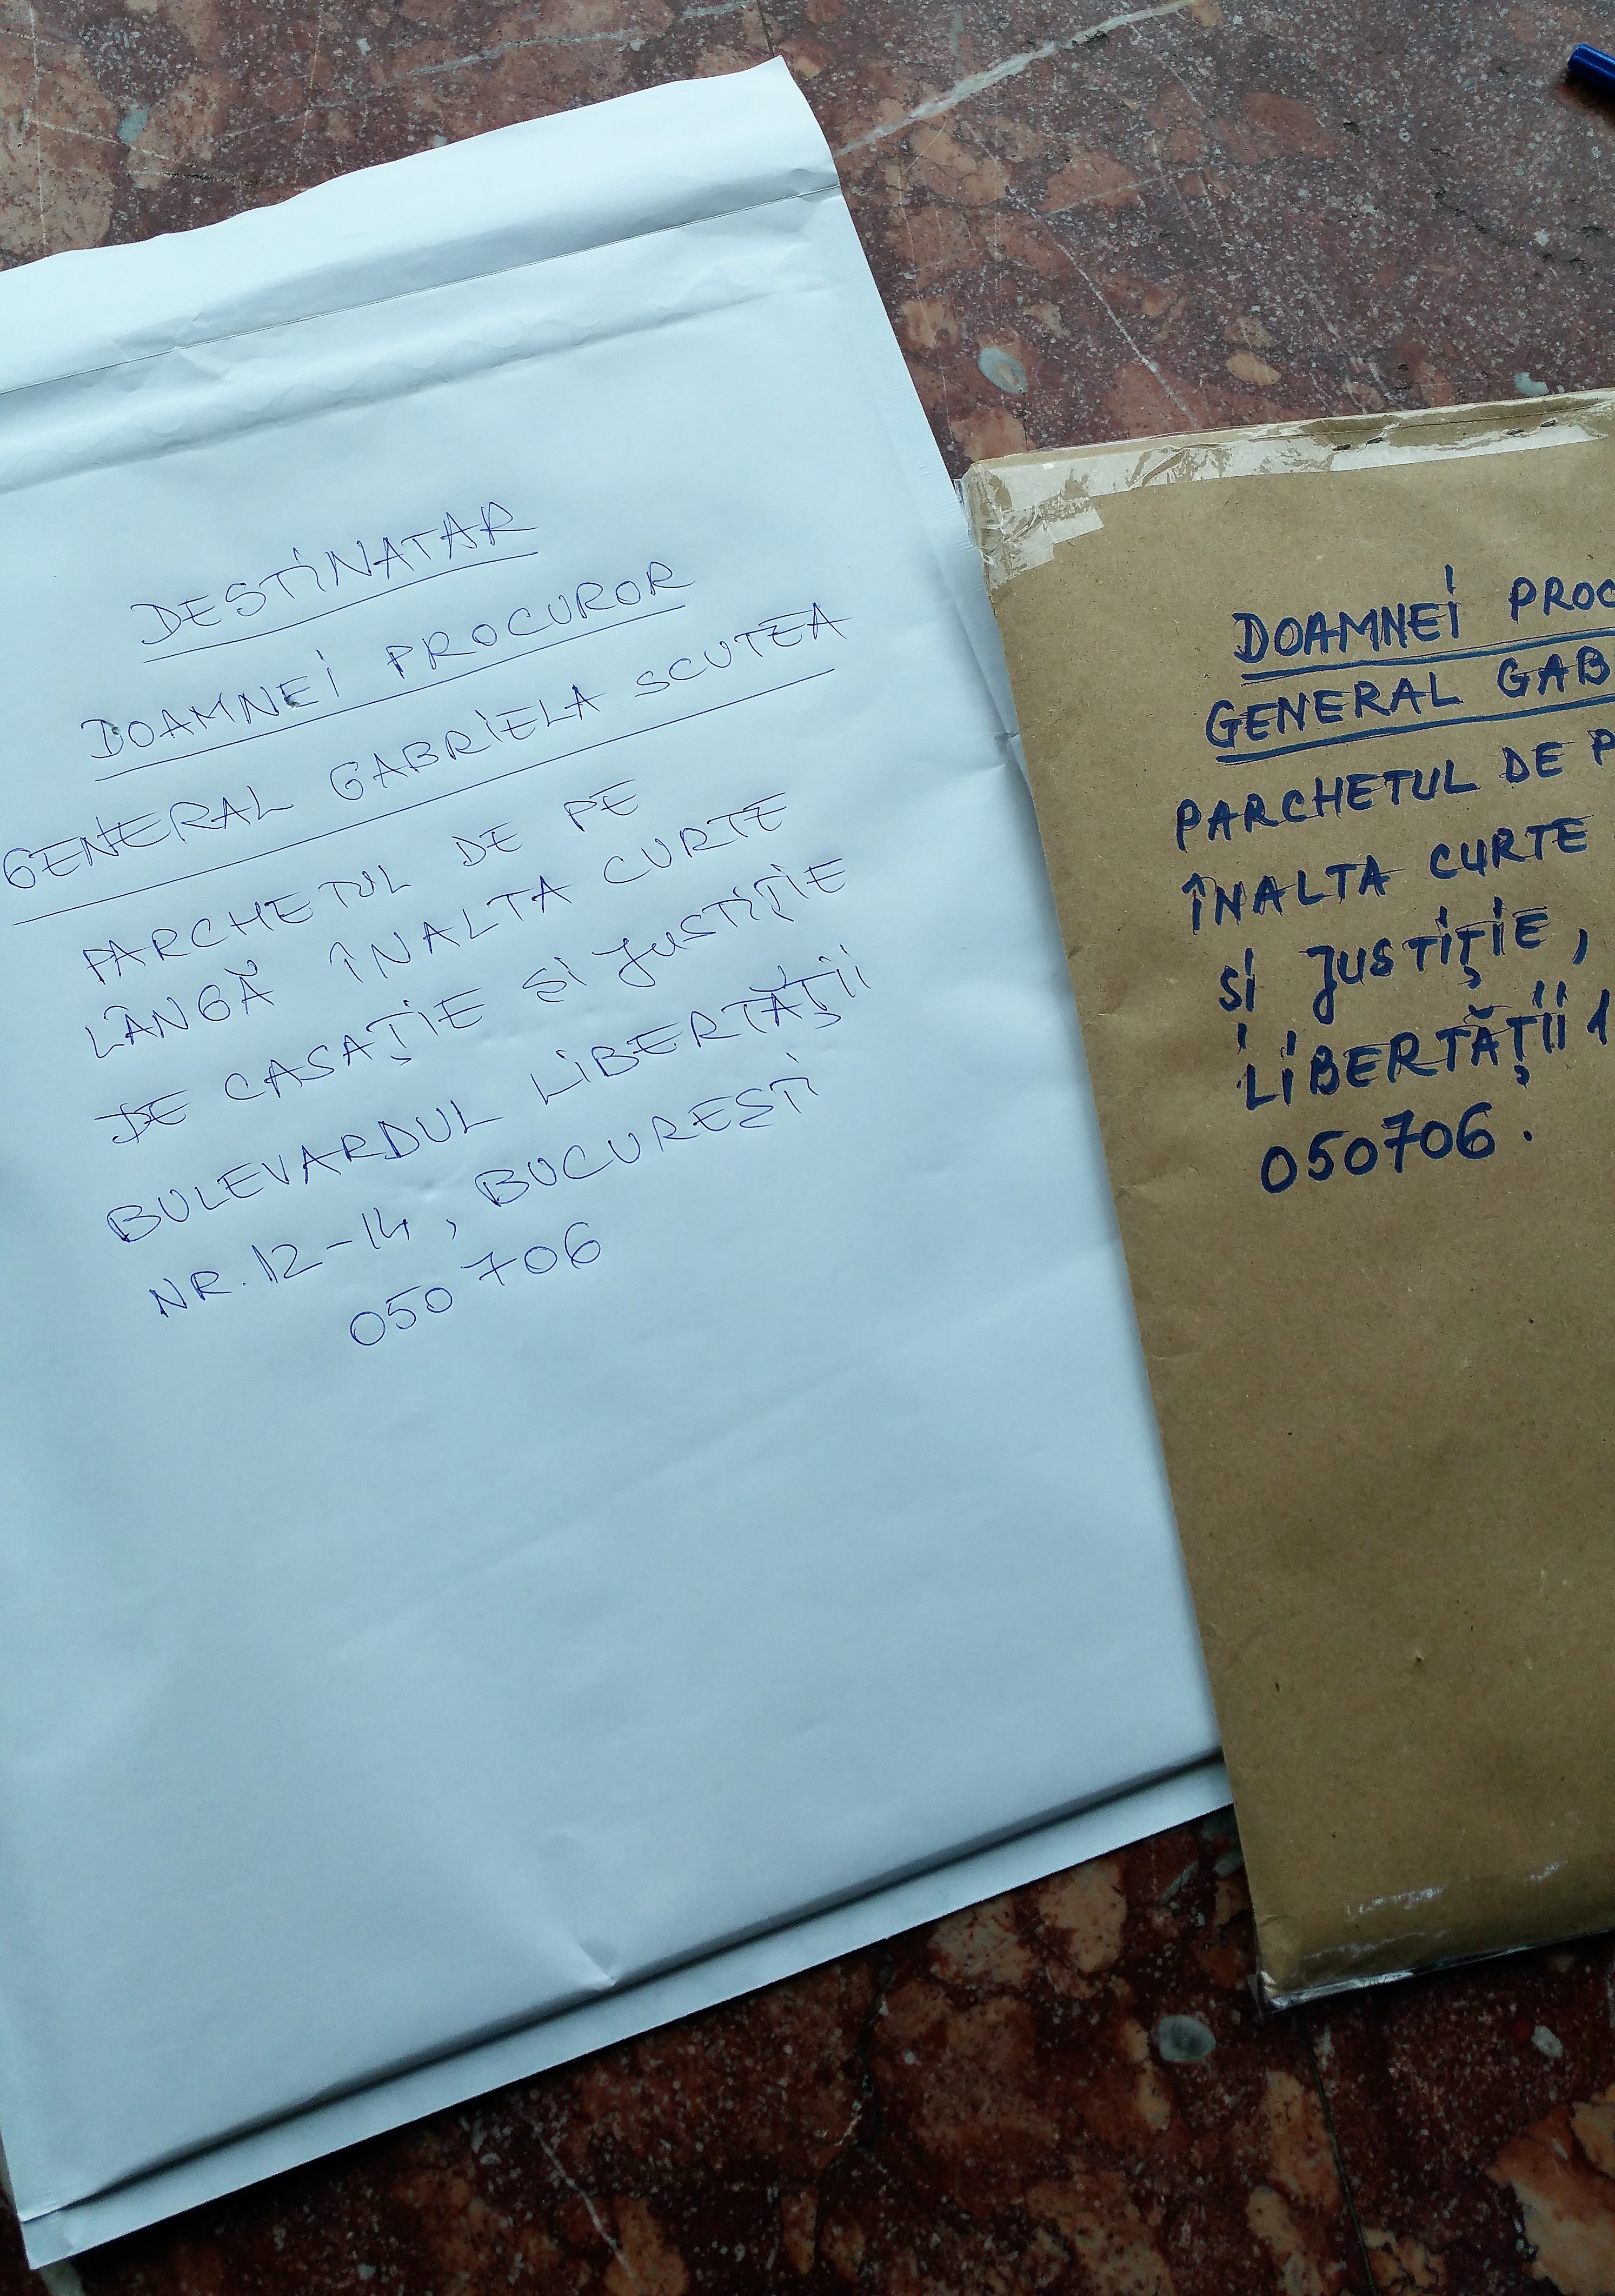 DESTINATAR
DOAMNEI PROCUROR
GENERAL GABRIELA SCUTEA
PARCHETUL DE PE
LÂNGĂ ÎNALTA CURTE
DE CASAȚIE ȘI JUSTIȚIE
BULEVARDUL LIBERTĂȚII
NR. 12-14, BUCUREȘTI
050706
DOAMNEI PROC
GENERAL GAB
PARCHETUL DE P
ÎNALTA CURTE
ȘI JUSTIȚIE,
LIBERTĂȚII 1
050706.